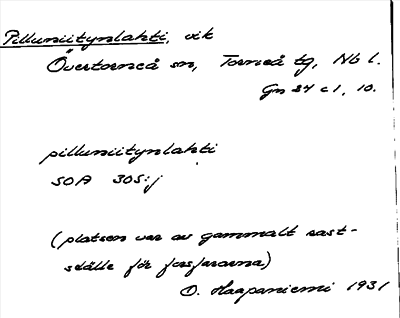 Pilluniitynlahti, vik
Övertorneå sn, Torneå tg, Nb l.
Gn 34 c 1, 10.
pilluniitynlahti
SOA 305:j
(platsen var av gammalt rast-
ställe för forsfararna)
O. Haapaniemi 1931